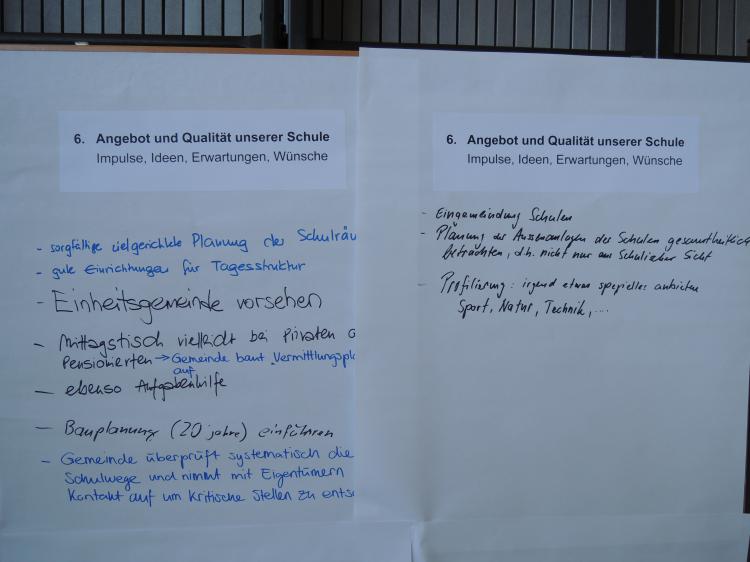 6. Angebot und Qualität unserer Schule
Impulse, Ideen, Erwartungen, Wünsche
- sorgfältige zielgerichtete Planung der Schulräu
- gute Einrichtungen für Tagesstruktur
- Einheitsgemeinde vorsehen
- Mittagstisch vielleicht bei Privaten o
Pensionierten → Gemeinde baut "Vermittlungspl
auf
- ebenso Aufgabenhilfe
- Bauplanung (20 Jahre) einführen
- Gemeinde überprüft systematisch die
Schulwege und nimmt mit Eigentümern
Kontakt auf um kritische Stellen zu ents
6. Angebot und Qualität unserer Schule
Impulse, Ideen, Erwartungen, Wünsche
- Eingemeindung Schulen
- Planung der Aussenanlagen der Schulen gesamtheitlich
betrachten, d.h. nicht nur aus Schulischer Sicht
- Profilierung: irgend etwas spezielles anbieten
Sport, Natur, Technik, ...